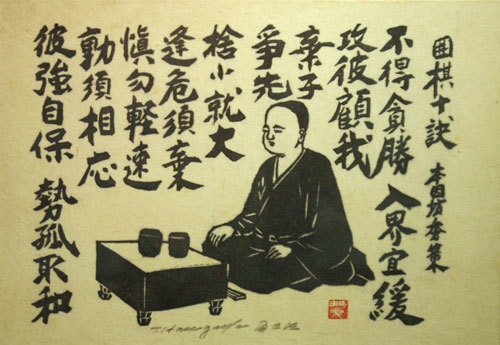 囲棋十訣 本因坊秀策
不得貪勝 入界宜緩
攻彼顧我
棄子
爭先
捨小就大
逢危須棄
慎勿軽速
動須相応
彼強自保 勢孤取和
T. Hasegawa